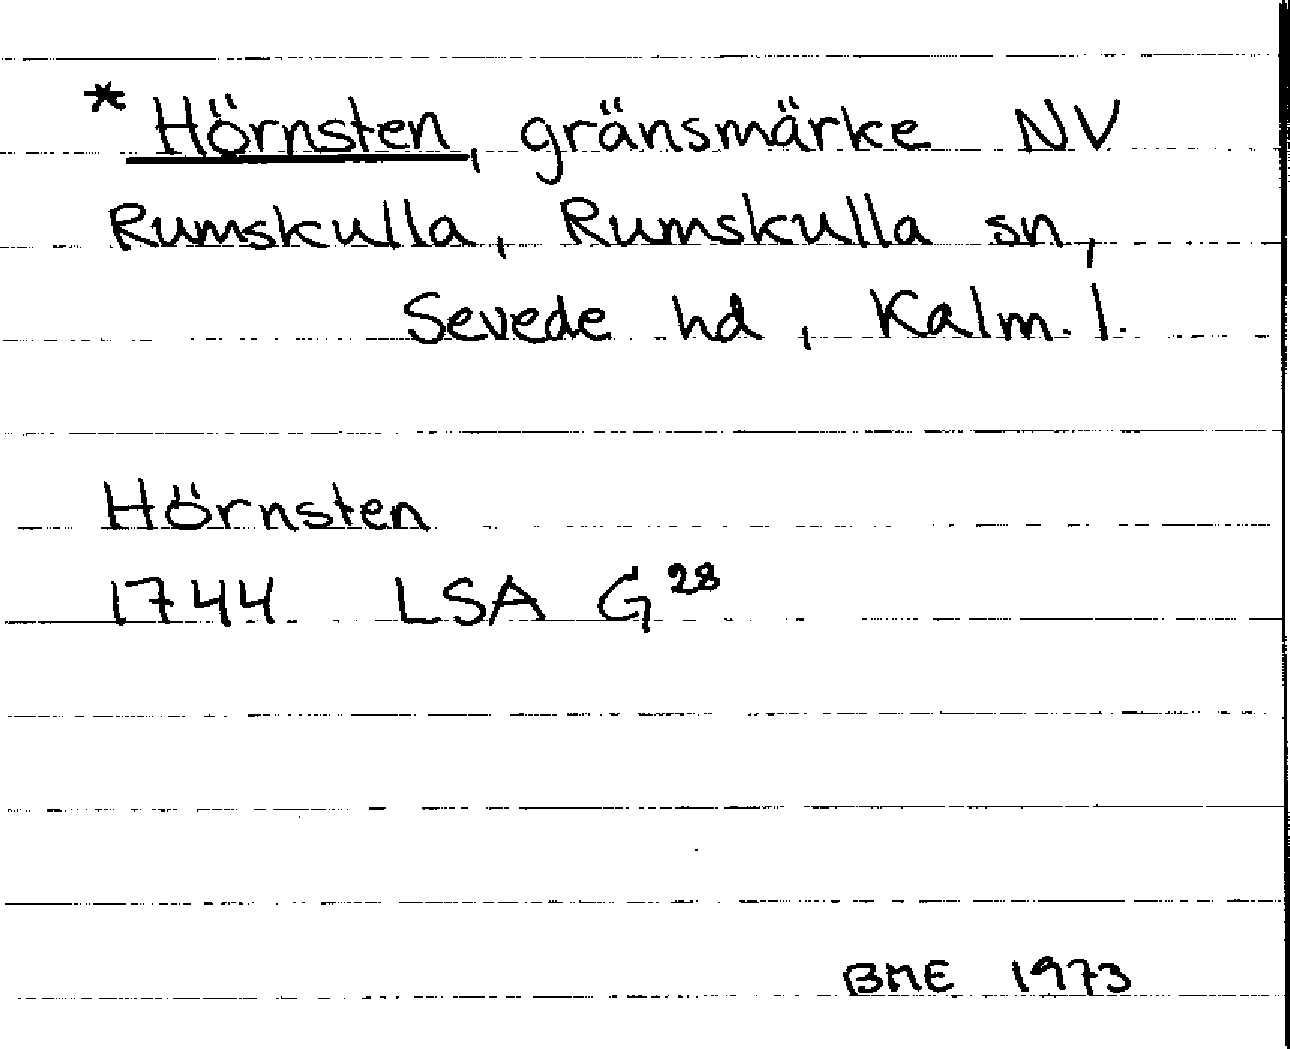 * Hörnsten, gränsmärke NV
Rumskulla, Rumskulla sn,
Sevede hd, Kalm. l.
Hörnsten
1744 LSA G²⁸
BME 1973